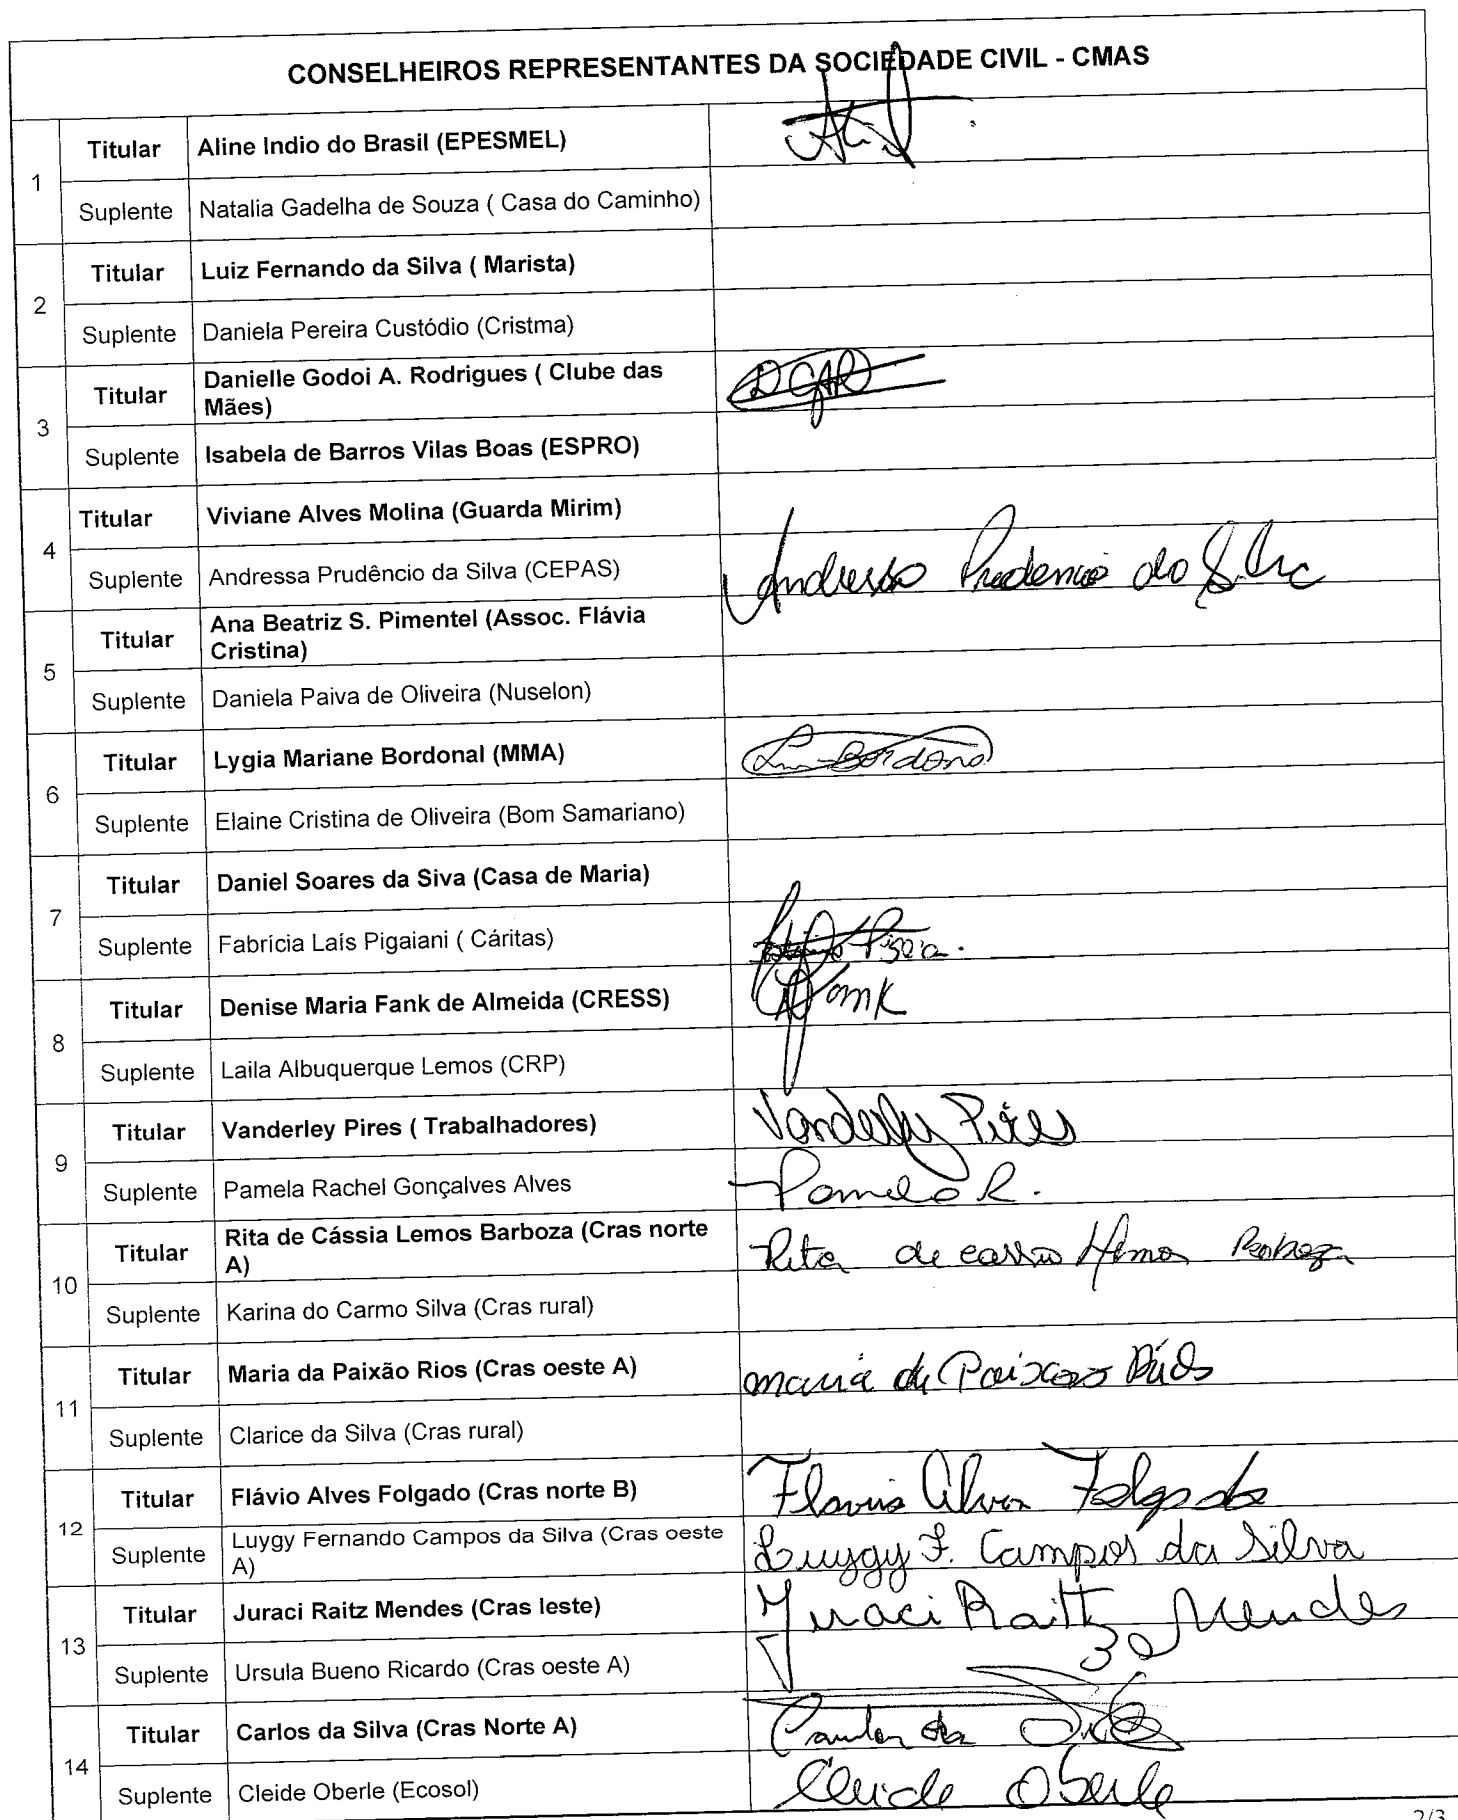 CONSELHEIROS REPRESENTANTES DA SOCIEDADE CIVIL - CMAS
1
Titular Aline Indio do Brasil (EPESMEL)
Suplente Natalia Gadelha de Souza ( Casa do Caminho)
2
Titular Luiz Fernando da Silva ( Marista)
Suplente Daniela Pereira Custódio (Cristma)
3
Titular Danielle Godoi A. Rodrigues ( Clube das
Mães)
DGAR
Suplente Isabela de Barros Vilas Boas (ESPRO)
4
Titular Viviane Alves Molina (Guarda Mirim)
Suplente Andressa Prudêncio da Silva (CEPAS) Andressa Prudencio da Silva
5
Titular Ana Beatriz S. Pimentel (Assoc. Flávia
Cristina)
Suplente Daniela Paiva de Oliveira (Nuselon)
6
Titular Lygia Mariane Bordonal (MMA) Bordonal
Suplente Elaine Cristina de Oliveira (Bom Samariano)
7
Titular Daniel Soares da Siva (Casa de Maria)
Suplente Fabrícia Laís Pigaiani ( Cáritas)
8
Titular Denise Maria Fank de Almeida (CRESS) Fank
Suplente Laila Albuquerque Lemos (CRP)
9
Titular Vanderley Pires ( Trabalhadores) Vanderley Pires
Suplente Pamela Rachel Gonçalves Alves Pamela R.
10
Titular Rita de Cássia Lemos Barboza (Cras norte
A)
Rita de cassia Lemos Barboza
Suplente Karina do Carmo Silva (Cras rural)
11
Titular Maria da Paixão Rios (Cras oeste A) maria da Paixão Rios
Suplente Clarice da Silva (Cras rural)
12
Titular Flávio Alves Folgado (Cras norte B) Flavio Alves Folgado
Suplente Luygy Fernando Campos da Silva (Cras oeste
A)
Luygy F. Campos da Silva
13
Titular Juraci Raitz Mendes (Cras leste) Juraci Raitz Mendes
Suplente Ursula Bueno Ricardo (Cras oeste A)
14
Titular Carlos da Silva (Cras Norte A) Carlos da Silva
Suplente Cleide Oberle (Ecosol) Cleide Oberle
2/3